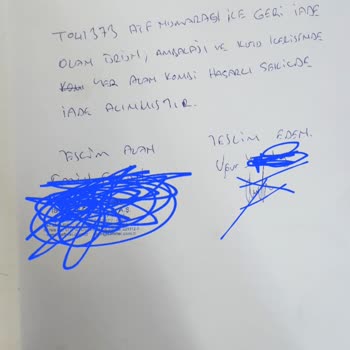 TO41373 ATF NUMARASI İLE GERİ İADE
OLAN ÜRÜN, AMBALAJI VE KUTU İÇERİSİNDE
YER ALAN KOMBİ HASARLI ŞEKİLDE
İADE ALINMIŞTIR.
TESLİM ALAN
TESLİM EDEN.
Uğur